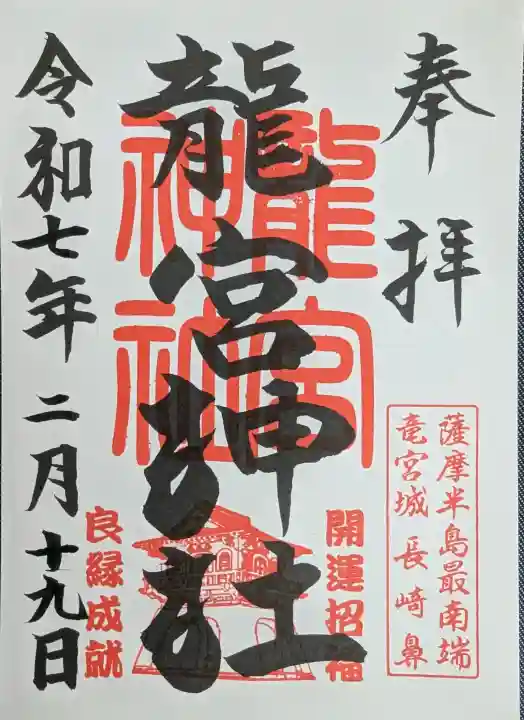 奉拝
薩摩半島最南端
竜宮城 長崎鼻
龍宮神社
龍宮
神社
開運招福
良縁成就
令和七年二月十九日